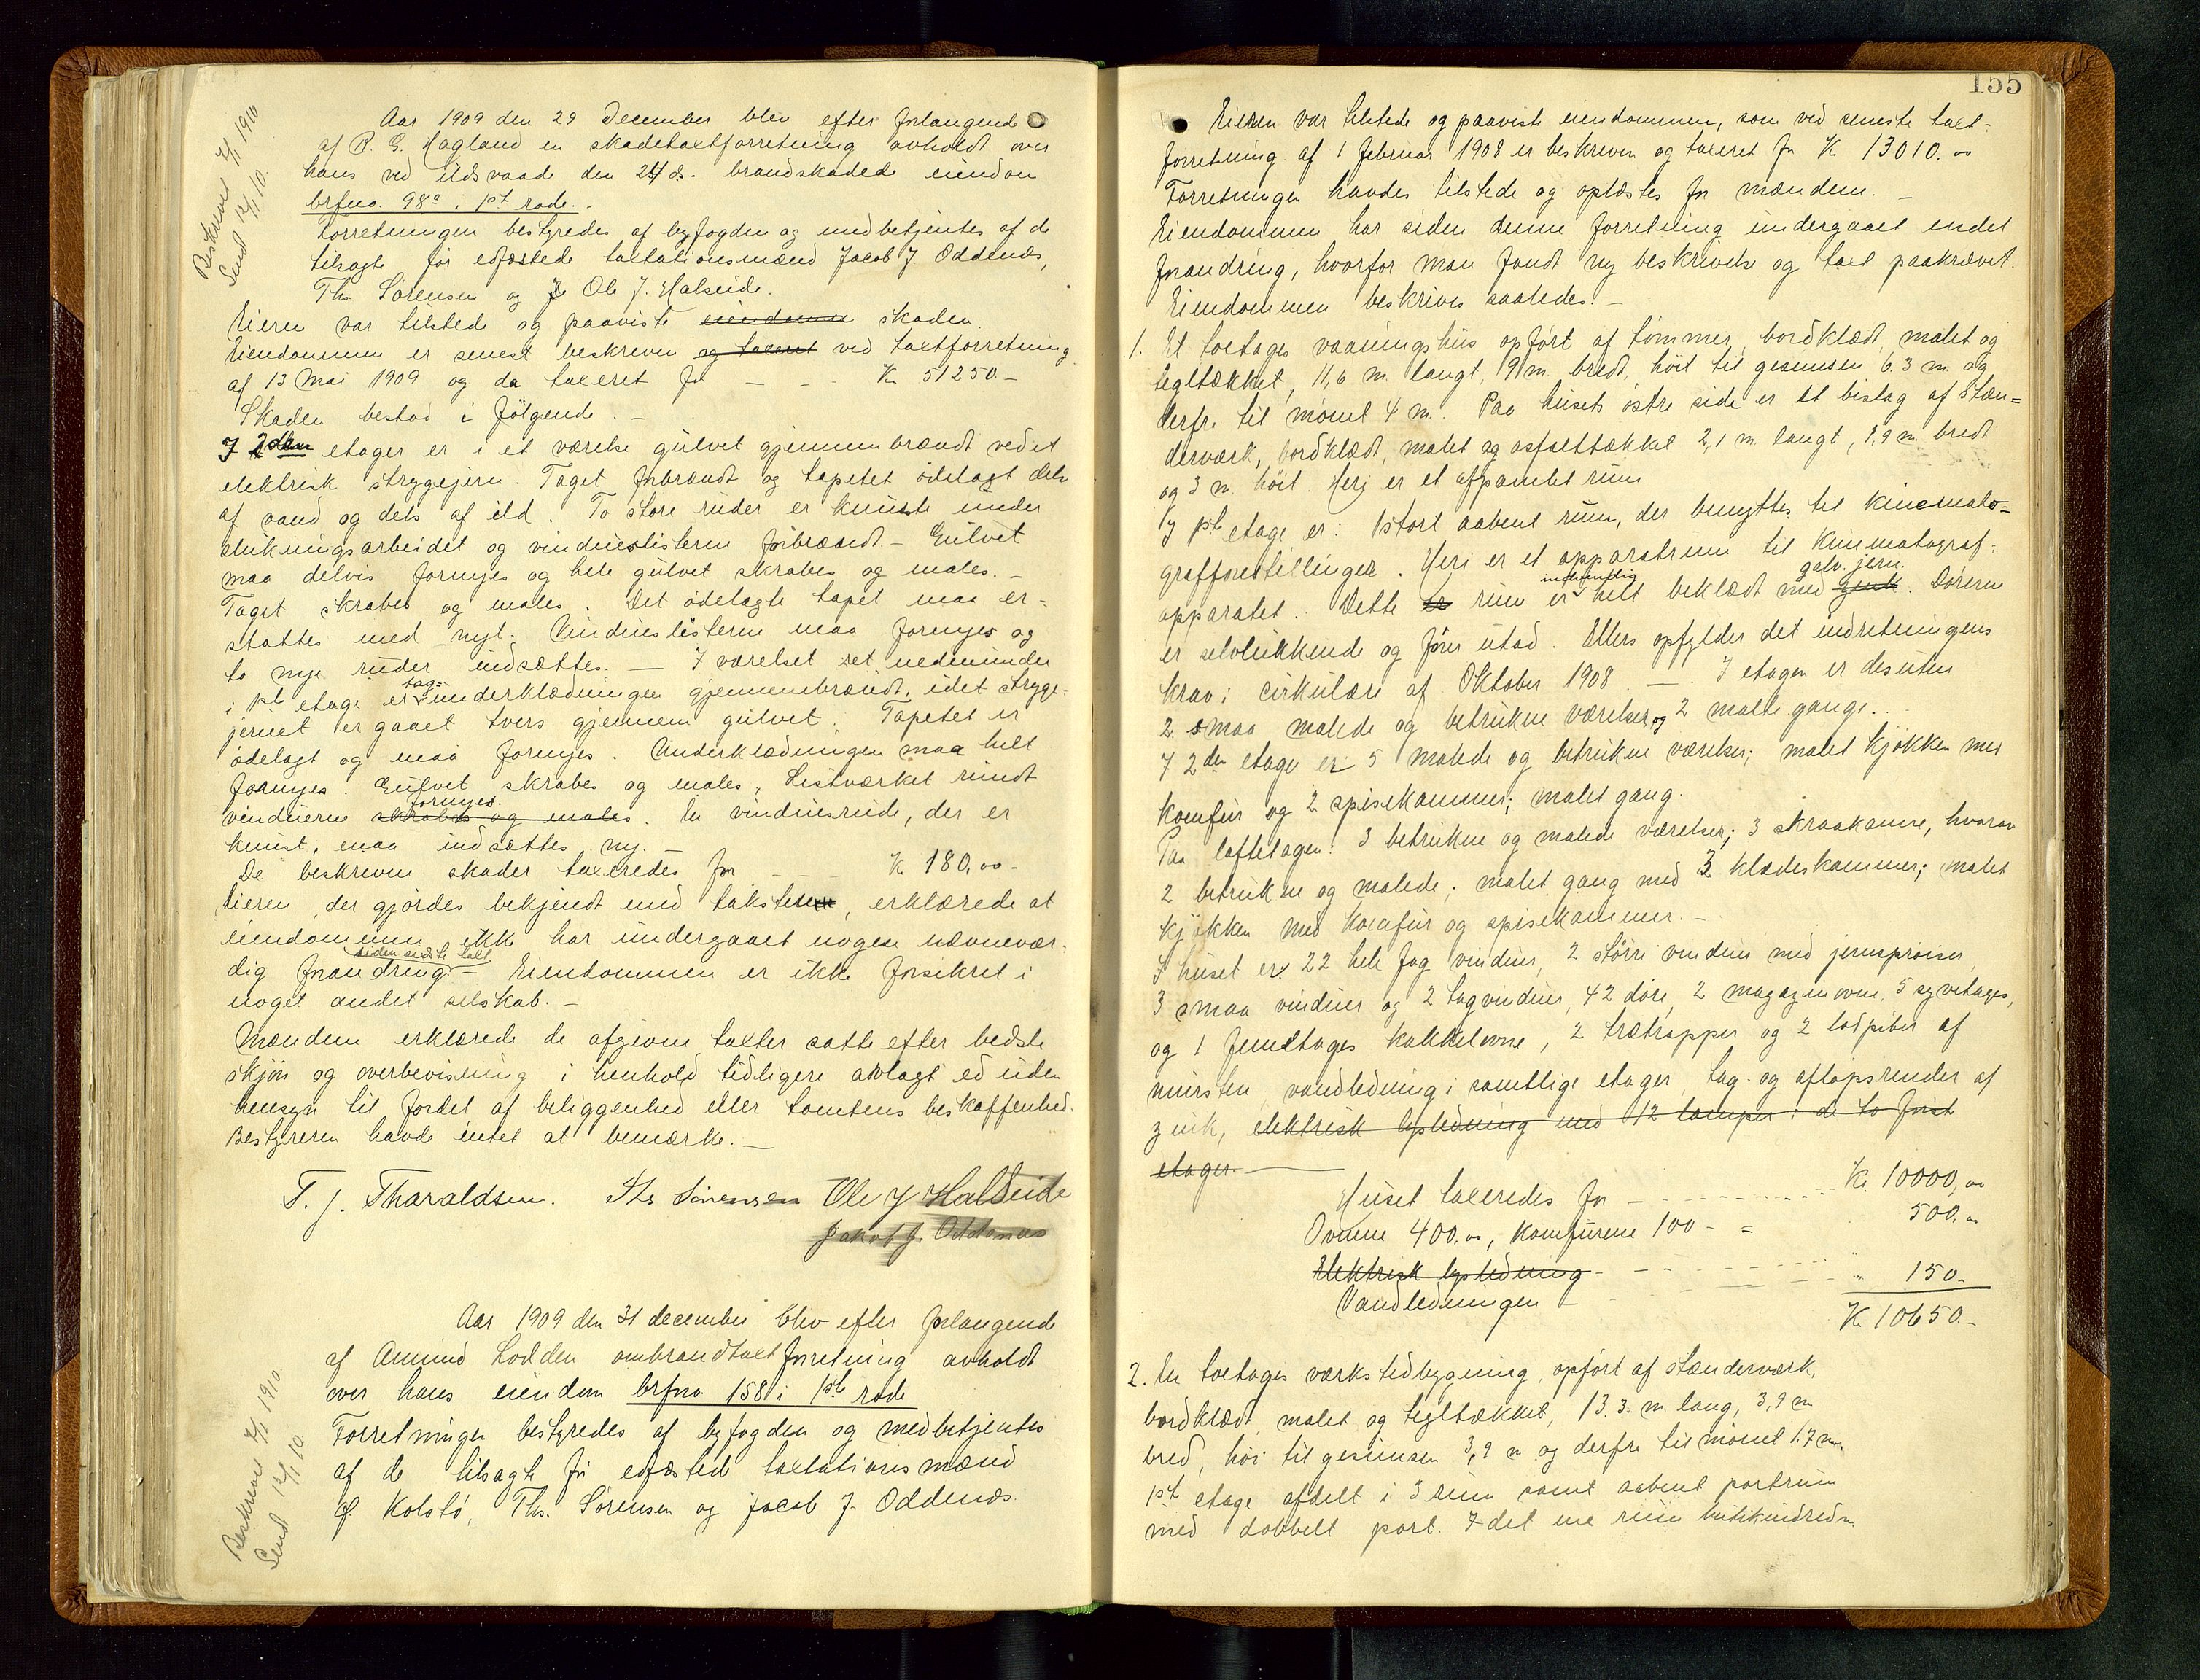 Beskrevet 7/1 1910
Send 12/1 10.
Aar 1909 den 29 December blev efter forlangende
af R. G. Hagland en skadetaxtforretning avholdt over
hans ved ildsvaade den 24 ds. brandskadede eiendom
brfno. 98a i 1ste rode.
Forretningen bestyredes af byfogden og medbetjentes af de
tilsagte før edfæstede taxtationsmænd Jacob J. Oddenæs,
Ths. Sørensen og Ole J. Halseide.
Eieren var tilstede og paaviste eiendommen skaden.
Eiendommen er senest beskreven og taxeret ved taxtforretning
af 13 Mai 1909 og da taxeret for — - - Kr. 51250.-
Skaden bestod i følgende. -
I 2den etage er i et værelse gulvet gjennembrændt ved et
elektrisk strygejern. Taget forbrændt og tapetet ødelagt dels
af vand og dels af ild. To store ruder er knuste under
slukningsarbeidet og vindueslisterne forbrændt. - Gulvet
maa delvis fornyes og hele gulvet skrabes og males. -
Taget skrabes og males. Det ødelagte tapet maa er-
stattes med nyt. Vindueslisterne maa fornyes og
to nye ruder indsættes. — I værelset ret nedenunder
i 1ste etage er tag-underklædningen gjennembrændt, idet stryge-
jernet er gaaet tvers gjennem gulvet. Tapetet er
ødelagt og maa fornyes. Underklædningen maa helt
fornyes. Gulvet skrabes og males. Listværket rundt
vinduerne skrabes og males fornyes. En vinduesrude, der er
knust, maa indsættes ny. -
De beskrevne skader taxeredes for - Kr. 180,00 -
Eieren, der gjordes bekjendt med taksten, erklærede at
eiendommen ikke har undergaaet nogen nævnevær-
dig forandring siden sidste taxt. - Eiendommen er ikke forsikret i
noget andet selskab. -
Mændene erklærede de afgivne taxter satte efter bedste
skjøn og overbevisning i henhold tidligere avlagt ed uden
hensyn til fordel af beliggenhed eller tomtens beskaffenhed.
Bestyreren havde intet at bemærke. —
T. J. Tharaldsen. Ths Sørensen Ole J Halseide
Jakob J. Oddenæs
Beskrevet 7/1 1910.
Send 12/1 10.
Aar 1909 den 31 december blev efter forlangende
af Amund Lodden ombrandtaxtforretning avholdt
over hans eiendom brfno 158 i 1ste rode
Forretningen bestyredes af byfogden og medbetjentes
af de tilsagte før edfæstede taxtationsmænd
O. Kolstø, Ths. Sørensen og Jacob J. Oddenæs.
155
Eieren var tilstede og paaviste eiendommen, som ved seneste taxt-
forretning af 1 februar 1908 er beskreven og taxeret for Kr. 13010.00
Forretningen havdes tilstede og oplæstes for mændene. -
Eiendommen har siden denne forretning undergaaet endel
forandring, hvorfor man fandt ny beskrivelse og taxt paakrævet.
Eiendommen beskrives saaledes: -
1. Et toetages vaaningshus opført af tømmer, bordklædt, malet og
tegltækket, 11,6 m. langt, 9 m. bredt, høit til gesimsen 6,3 m. og
derfra til mønet 4 m. Paa husets østre side er et bislag af stæn-
derværk, bordklædt, malet og asfalttækket 2,1 m. langt, 1,9 m. bredt
og 3 m. høit. Heri er et afpanelet rum
I 1ste etage er: 1 stort aabent rum, der benyttes til kinemato-
grafforestillinger. Heri er et apparatrum til kinematograf-
apparatet. Dette er rum er indvendig helt beklædt med zink galv. jern. Dørene
er selvlukkende og fører utad. Ellers opfylder det indretningens
krav i cirkulære af Oktober 1908. — I etagen er desuten
2 smaa malede og betrukne værelser og 2 malte gange.
I 2den etage er 5 malede og betrukne værelser; malet kjøkken med
komfur og 2 spisekammer; malet gang.
Paa loftetagen: 3 betrukne og malede værelser; 3 skraakamre, hvorav
2 betrukne og malede; malet gang med 3 klædeskammer; malet
kjøkken med komfur og spisekammer. -
I huset er: 22 hele fag vinduer, 2 større vinduer med jernsproiser,
3 smaa vinduer og 2 tagvinduer, 42 døre, 2 magazinovne, 5 syvetages,
og 1 femetages kakkelovne, 2 trætrapper og 2 lodpiber af
mursten, vandledning i samtlige etager, tag- og afløpsrender af
zink, elektrisk lysledning med 12 lamper i de to første
etager.
Huset taxeredes for - - - - Kr. 10000,00
Ovnene 400.00, komfurene 100 - = 500.00
Elektrisk lysledning - - - -
Vandledningen - " 150.-
Kr. 10650.-
2. En toetages værkstedbygning, opført af stænderværk,
bordklædt, malet og tegltækket, 13.3. m. lang, 3,9 m
bred, høi til gesimsen 3,9 m og derfra til mønet 1.7 m.
1ste etage afdelt i 3 rum samt aabent portrum
med dobbelt port. I det ene rum butikindredn.